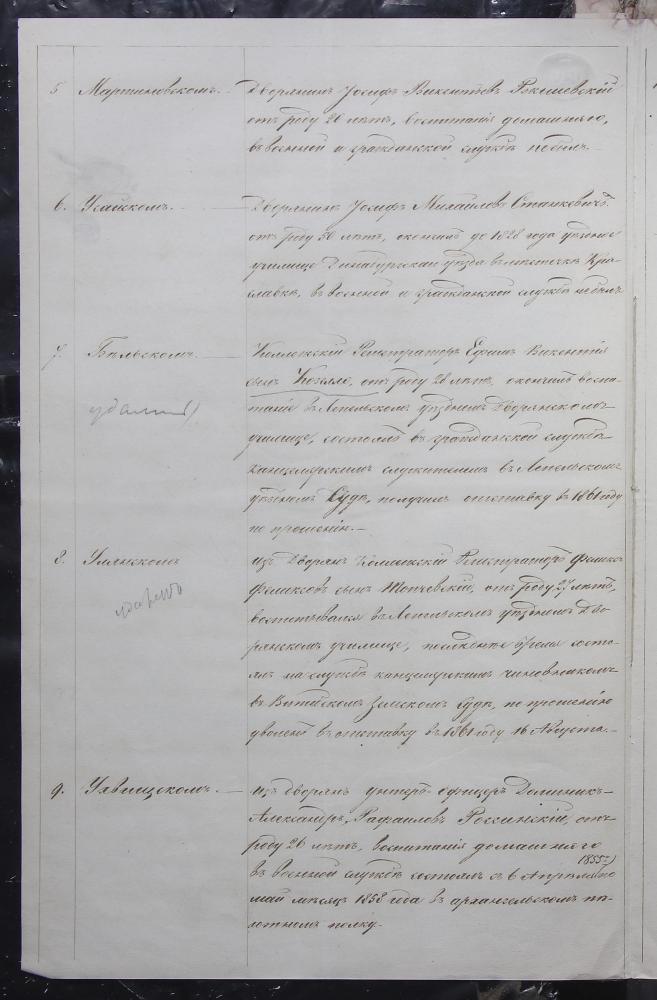 5 Мартиновскомъ. — Дворянинъ Іосифъ Викентьевъ
отъ роду 20 лѣтъ, воспитанія домашняго,
въ военной и гражданской службѣ не былъ.
6. Усайскомъ. — Дворянинъ Іосифъ Михайловъ Станкевичъ.
отъ роду 50 лѣтъ, окончилъ до 1828 года уѣздное
училище Динабургскаго уѣзда въ мѣстечкѣ Кра-
славкѣ, въ военной и гражданской службѣ не былъ
7. Бѣльскомъ. — Коллежскій Регистраторъ Ефимъ Викентія
сынъ Козелло, отъ роду 28 лѣтъ, окончилъ воспи-
таніе въ Лепельскомъ уѣздномъ Дворянскомъ
училище, состоялъ въ гражданской службѣ
канцелярскимъ служителемъ въ Лепельскомъ
уѣздномъ Судѣ, получилъ отставку въ 1861 году
по прошенію. —
8. Улянскомъ изъ Дворянъ Коллежскій Регистраторъ Феликсъ
Феликсовъ сынъ отъ роду 27 лѣтъ,
воспитывался въ Лепельскомъ уѣздномъ Дво-
рянскомъ училище, время состо-
ялъ на службѣ канцелярскимъ чиновникомъ
въ Витебскомъ Земскомъ Судѣ, по прошенію
уволенъ въ отставку въ 1861 году 16 Августа. —
9. — изъ дворянъ унтеръ-офицеръ Доминикъ-
Александръ Рафаиловъ Россинскій, отъ
роду 26 лѣтъ, воспитанія домашняго
въ военной службѣ состоялъ съ 6 Апрѣля 1855 г) по
май мѣсяцъ 1858 года въ архангельскомъ пѣ-
хотномъ полку.